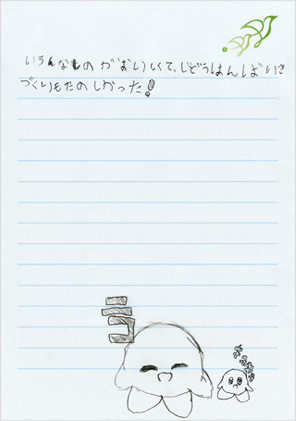 いろんなものがおいしくて、じどうはんばいき
づくりもたのしかった!